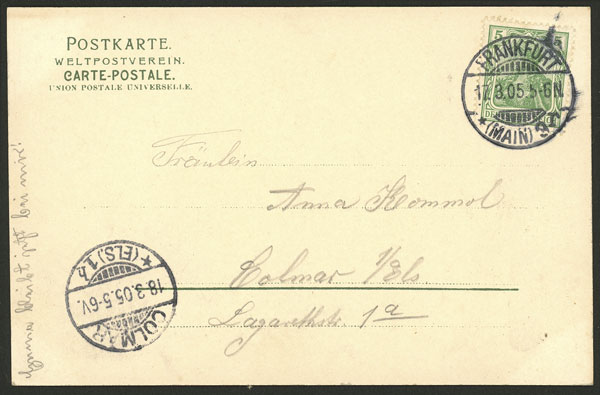 POSTKARTE.
WELTPOSTVEREIN.
CARTE-POSTALE.
UNION POSTALE UNIVERSELLE.
5 5
FRANKFURT
17.3.05.5-6N.
*(MAIN)
Fräulein
Anna Kommol
Colmar i/Els.
Lazarethstr. 1a
COLMAR
18.3.05.5-6V.
*(ELS.)1.b
bei mir!